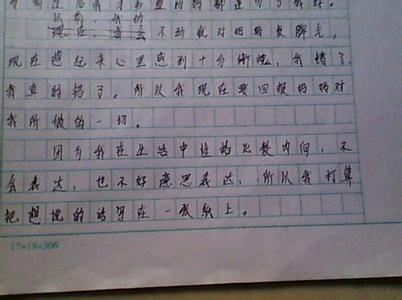 后我才知道妈妈都是为了我好。
以前，我动
不动就对妈妈发脾气，
现在想起来心里感到十分惭愧，我错了，
我真的错了。所以我现在要回报妈妈对
我所做的一切。
因为我在生活中性格比较内向，不
会表达，也不好意思表达，所以我打算
把想说的话写在一张纸上。
17×18=306